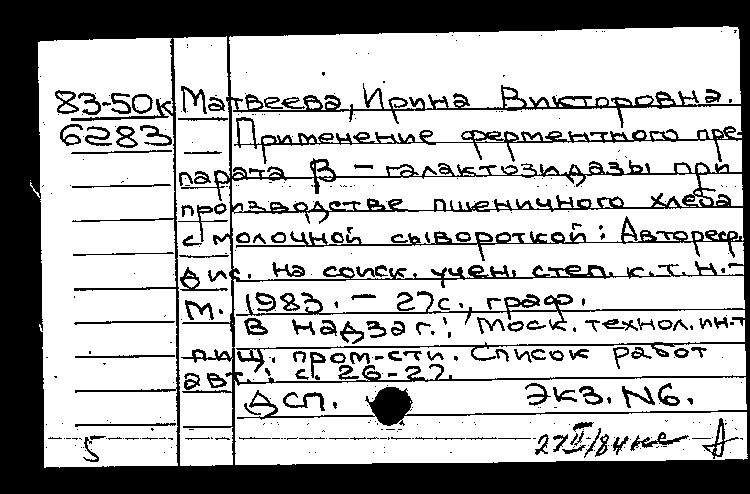 83-50к Матвеева, Ирина Викторовна.
6283 Применение ферментного пре-
парата β – галактозидазы при
производстве пшеничного хлеба
с молочной сывороткой: Автореф.
дис. на соиск. учен. степ. к.т.н. –
М. 1983. – 27с., граф.
В надзаг.: Моск. технол. ин-т
пищ. пром-сти. Список работ
авт.: с. 26-27.
ДСП. Экз. N6.
5 27 II/84